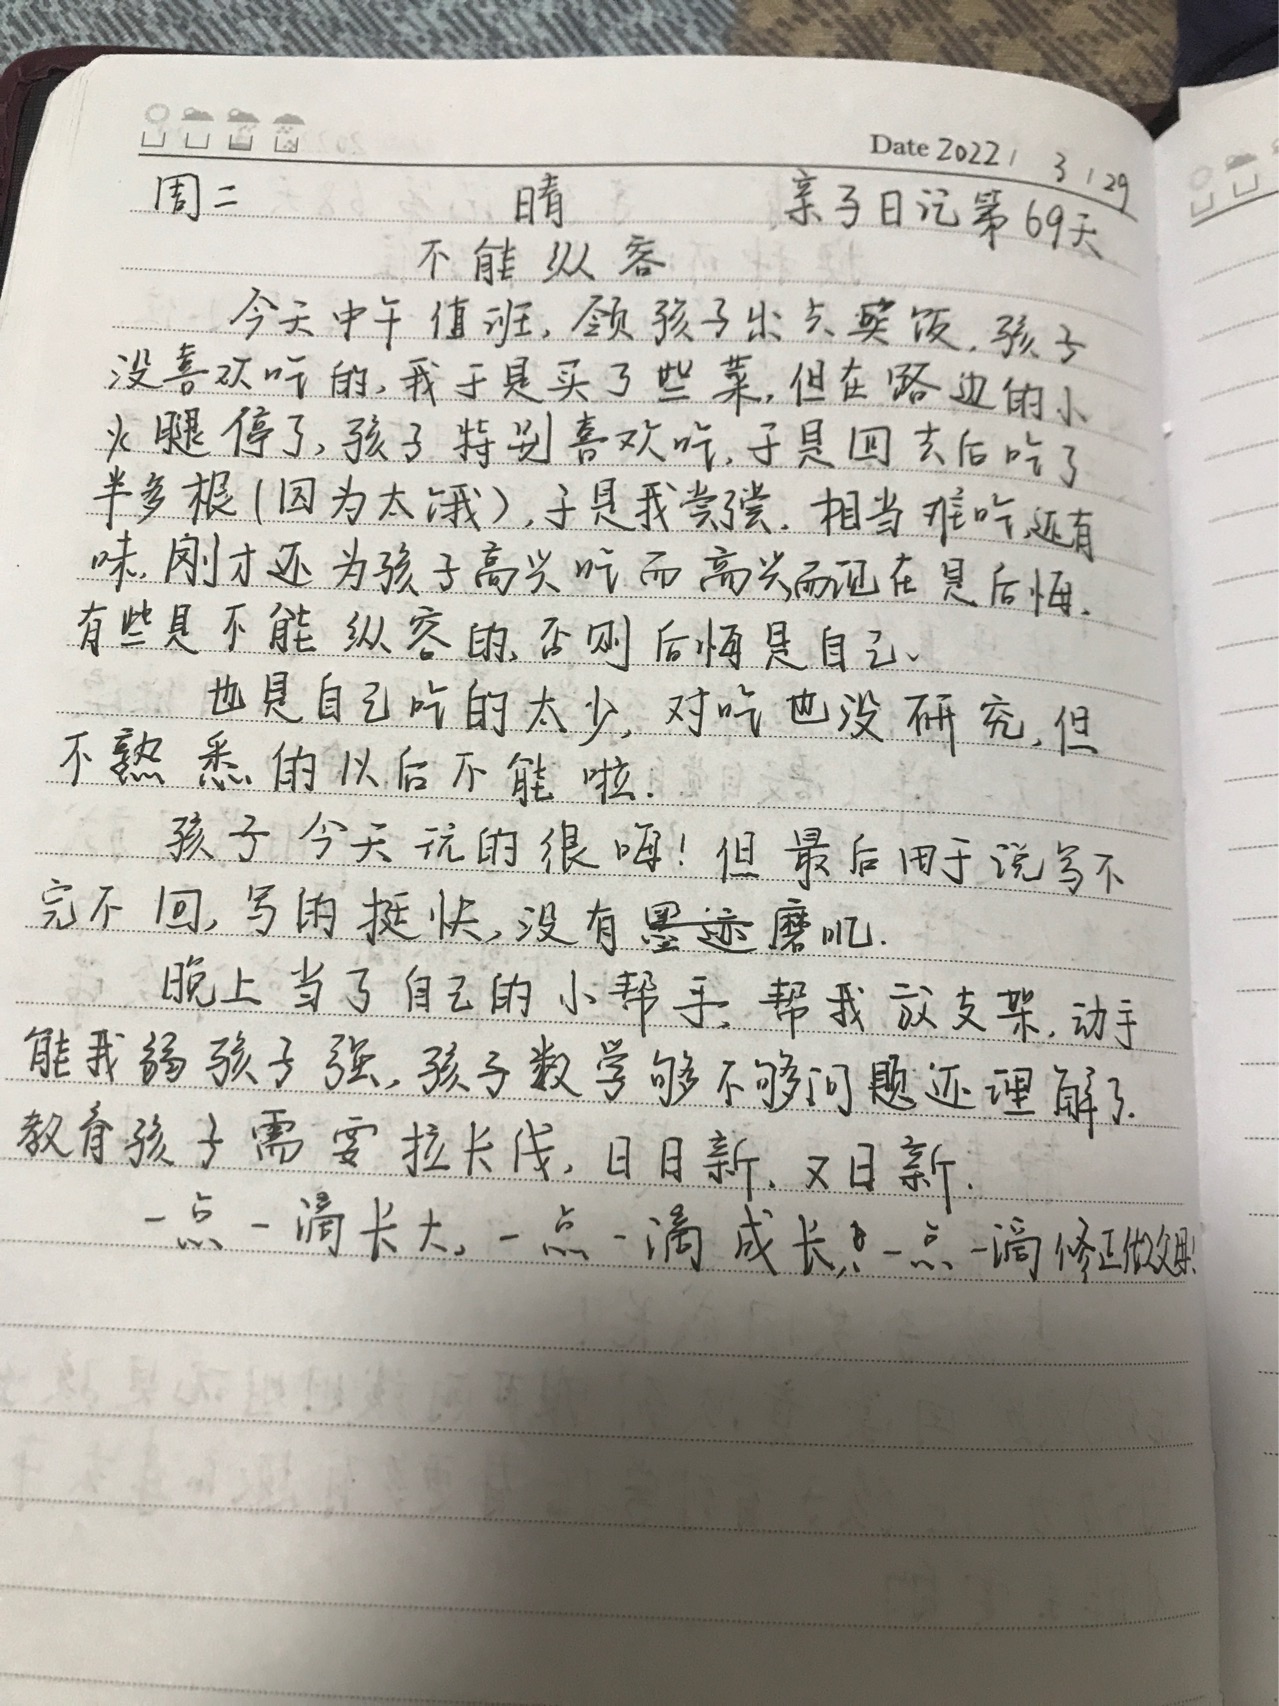 Date 2022 / 3 / 29
周二 晴 亲子日记第69天
不能纵容
今天中午值班，领孩子出去买饭，孩子
没喜欢吃的，我于是买了些菜，但在路边的小
火腿停了，孩子特别喜欢吃，于是回去后吃了
半多根（因为太饿），于是我尝尝，相当难吃，还有
味，刚才还为孩子高兴吃而高兴而现在是后悔，
有些是不能纵容的，否则后悔是自己、
也是自己吃的太少，对吃也没研究，但
不熟悉的以后不能啦．
孩子今天玩的很嗨！但最后用于说写不
完不回，写的挺快，没有墨迹磨叽．
晚上当了自己的小帮手，帮我放支架，动手
能我弱孩子强，孩子数学够不够问题还理解了．
教育孩子需要拉长线，日日新，又日新．
一点一滴长大，一点一滴成长，！一点一滴修正做父母！